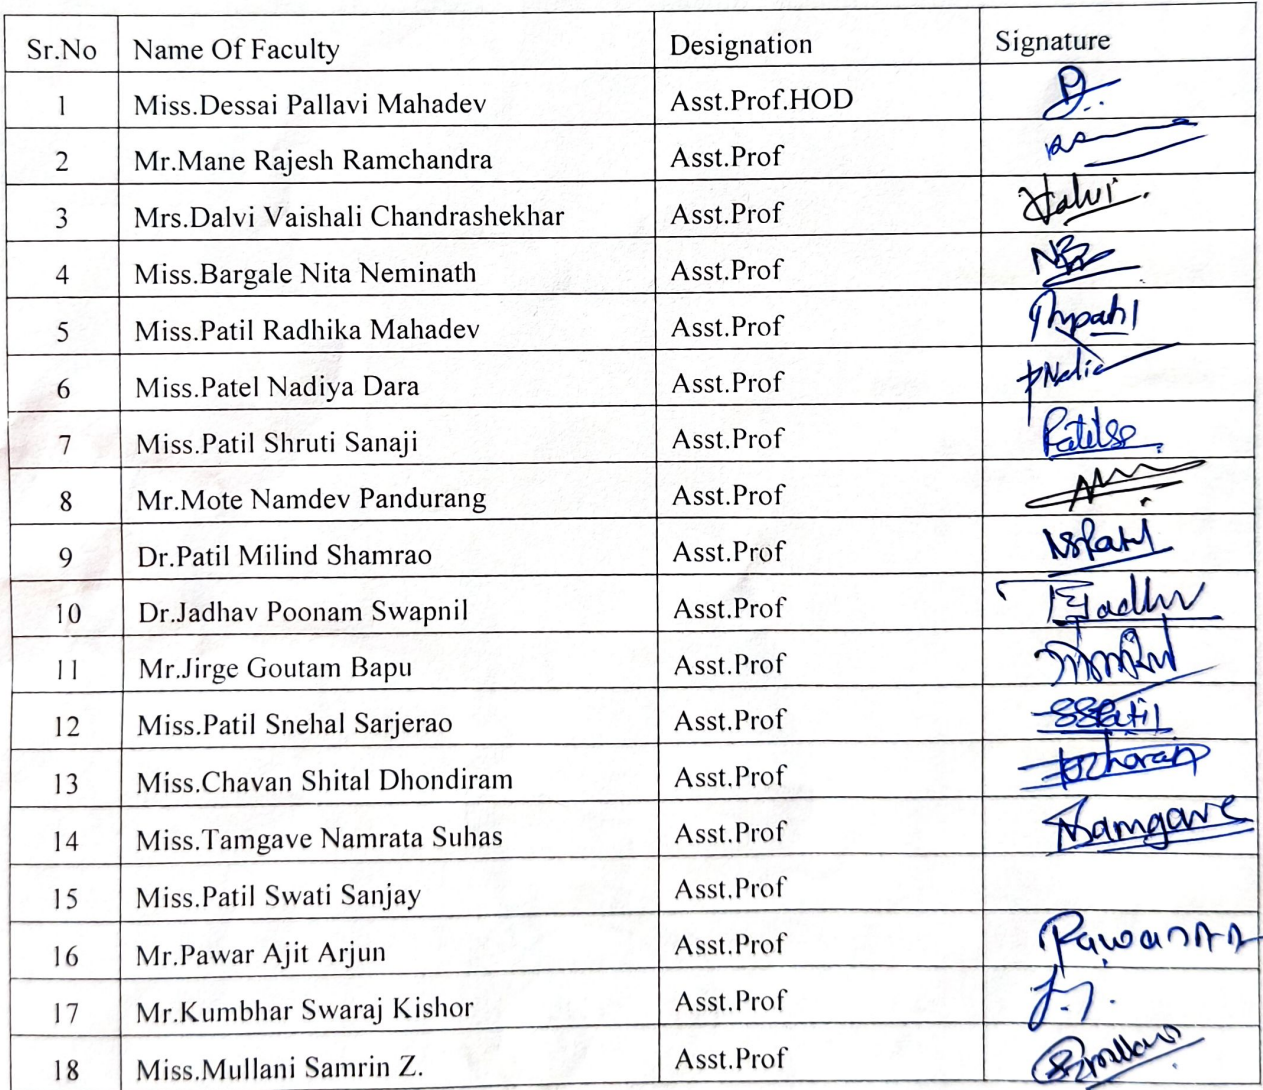 Sr.No Name Of Faculty Designation Signature
1 Miss.Dessai Pallavi Mahadev Asst.Prof.HOD
2 Mr.Mane Rajesh Ramchandra Asst.Prof
3 Mrs.Dalvi Vaishali Chandrashekhar Asst.Prof Dalvi
4 Miss.Bargale Nita Neminath Asst.Prof
5 Miss.Patil Radhika Mahadev Asst.Prof
6 Miss.Patel Nadiya Dara Asst.Prof
7 Miss.Patil Shruti Sanaji Asst.Prof
8 Mr.Mote Namdev Pandurang Asst.Prof
9 Dr.Patil Milind Shamrao Asst.Prof
10 Dr.Jadhav Poonam Swapnil Asst.Prof
11 Mr.Jirge Goutam Bapu Asst.Prof
12 Miss.Patil Snehal Sarjerao Asst.Prof SSPatil
13 Miss.Chavan Shital Dhondiram Asst.Prof
14 Miss.Tamgave Namrata Suhas Asst.Prof Tamgave
15 Miss.Patil Swati Sanjay Asst.Prof
16 Mr.Pawar Ajit Arjun Asst.Prof PawarAA
17 Mr.Kumbhar Swaraj Kishor Asst.Prof
18 Miss.Mullani Samrin Z. Asst.Prof